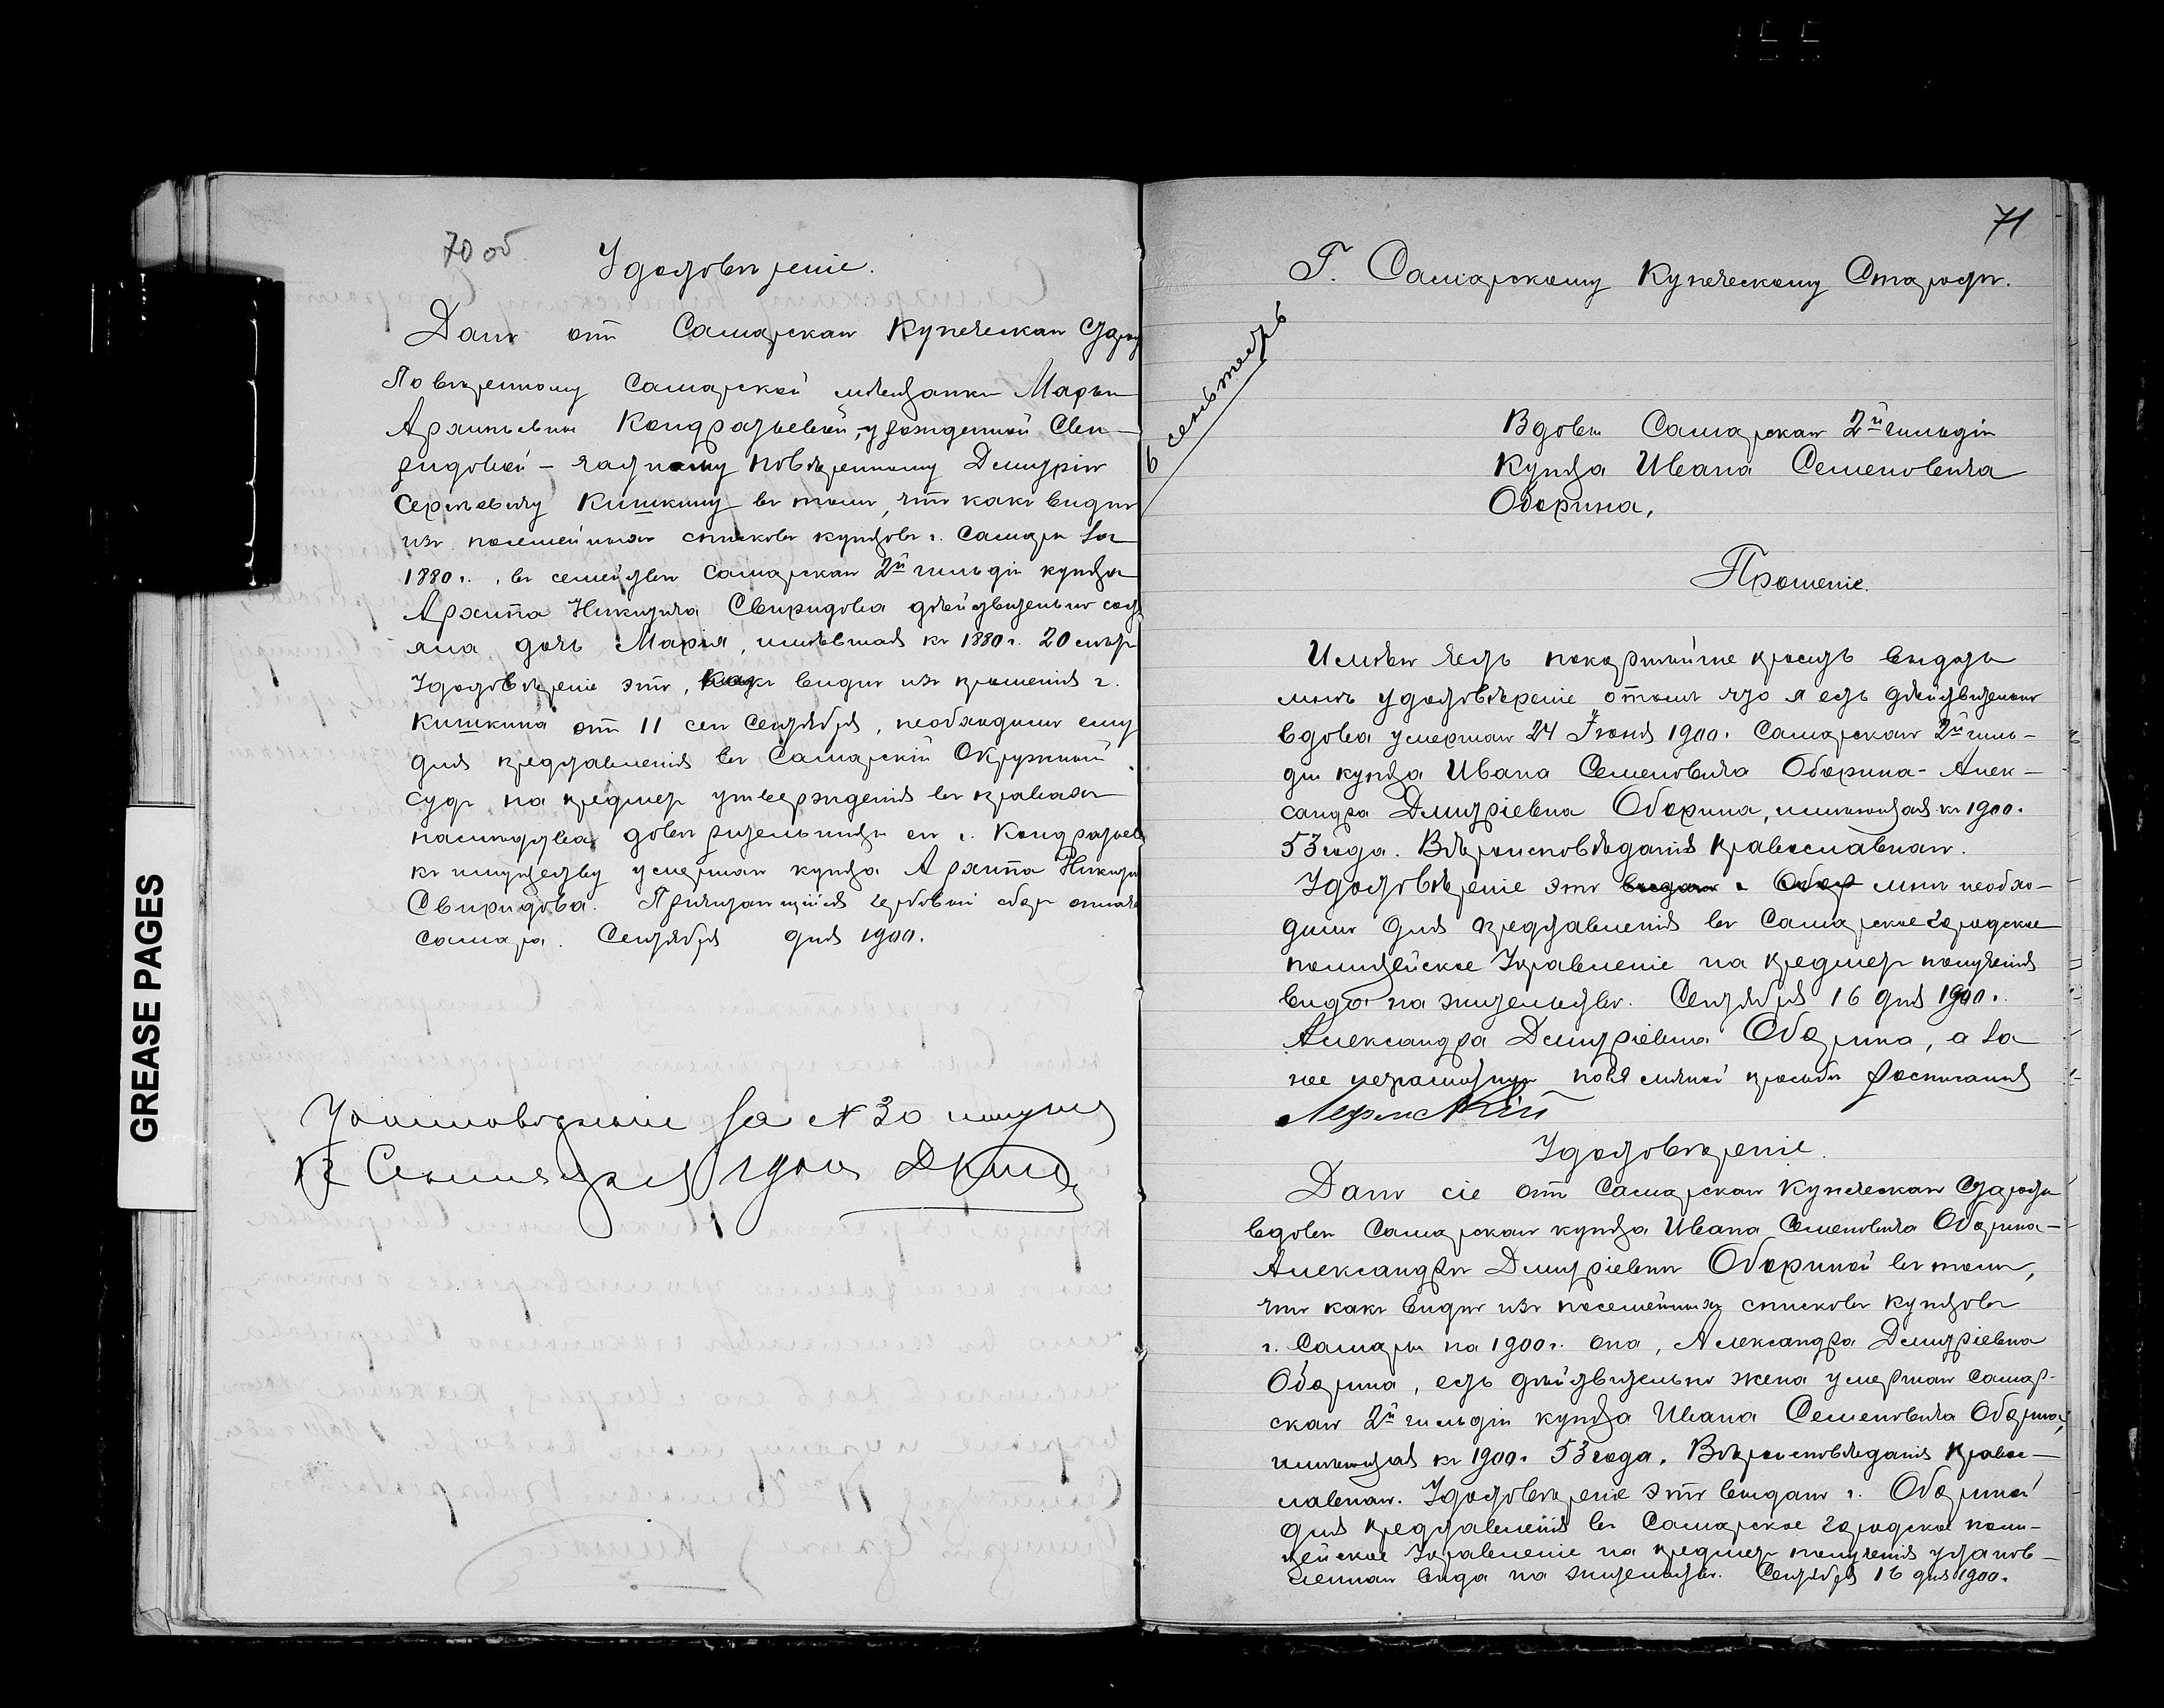 70 об
Удостовѣреніе.
Дано отъ Самарскаго Купеческаго Старо
Повѣренному Самарской мѣщанки Марьи
Архиповны Кондратьевой, урожденной Сви-
ридовой – частному повѣренному Дмитрію
Сергѣевичу Кишкину въ томъ, что какъ видно
изъ посемейныхъ списковъ купцовъ г. Самары за
1880 г., въ семействѣ Самарскаго 2й гильдіи купца
Архипа Никитича Свиридова дѣйствительно сост
яла дочь Марья, имѣвшая къ 1880 г. 20 лѣтъ
Удостовѣреніе это, какъ видно изъ прошенія г.
Кишкина отъ 11 сего Сентября, необходимо ему
для представленія въ Самарскій Окружный
Судъ на предметъ утвержденія въ правахъ
наслѣдства довѣрительницы его г. Кондратьев
къ имуществу умершаго купца Архипа Никити
Свиридова. Причитающійся гербовый сборъ оплаче
Самара. Сентября дня 1900.
Удостовѣреніе за № 30 получилъ
Сентября 1900
GREASE PAGES
71
Г. Самарскому Купеческому Старостѣ.
6 сентября
Вдовы Самарскаго 2й гильдіи
Купца Ивана Семеновича
Оборина,
Прошеніе.
Имѣю честь покорнѣйше просить выдать
мнѣ удостовѣреніе о томъ что я есть дѣйствительно
вдова умершаго 24 Іюня 1900 г. Самарскаго 2й гиль-
діи купца Ивана Семеновича Оборина - Алек-
сандра Дмитріевна Оборина, имѣющая къ 1900 г.
53 года. Вѣроисповѣданія Православнаго.
Удостовѣреніе это выдано г. Обор мнѣ необхо-
димо для представленія въ Самарское городское
полицейское Управленіе на предметъ полученія
вида на жительство. Сентября 16 дня 1900 г.
Александра Дмитріевна Оборина, а за
нее неграмотную по ея личной просьбѣ росписался
Удостовѣреніе.
Дано сіе отъ Самарскаго Купеческаго Старосты
вдовѣ Самарскаго купца Ивана Семеновича Оборина –
Александрѣ Дмитріевнѣ Обориной въ томъ,
что какъ видно изъ посемейныхъ списковъ купцовъ
г. Самары на 1900 г. она, Александра Дмитріевна
Оборина, есть дѣйствительно жена умершаго Самар-
скаго 2й гильдіи купца Ивана Семеновича Оборина,
имѣющая къ 1900 г. 53 года. Вѣроисповѣданія Право-
славнаго. Удостовѣреніе это выдано г. Обориной
для представленія въ Самарское городское поли-
цейское Управленіе на предметъ полученія установ-
леннаго вида на жительство. Сентября 16 дня 1900.